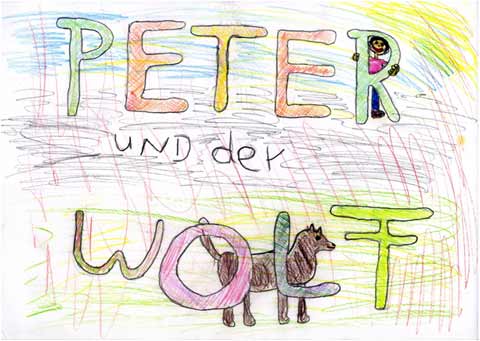 PETER
UND der
WOLF